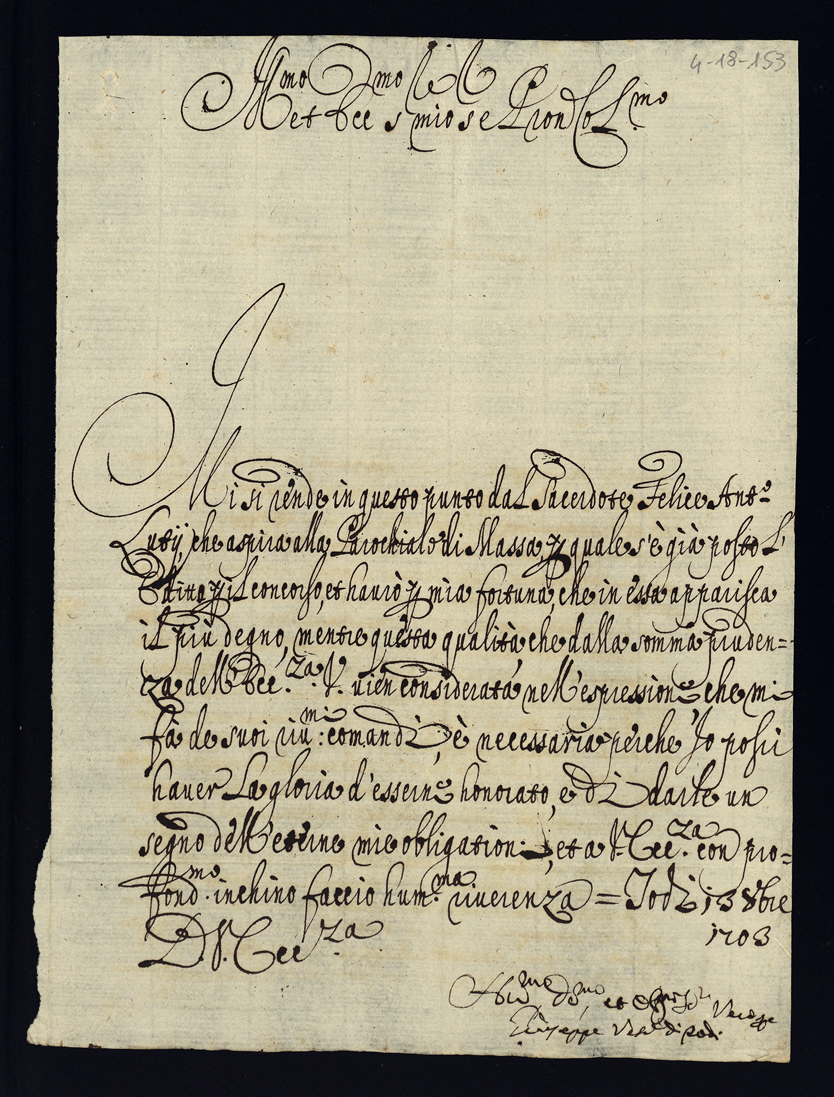 4-18-153
Ill.mo
et Ecc s mio s e Pron Col.mo
Mi si rende in questo punto dal Sacerdote Felice Ant.o
Lutij che aspira alla Parochiale di Massa, p quale s'è già posto L'
Editto p il concorso, et havrò p mia fortuna, che in essa apparisca
il più degno, mentre questa qualità, che dalla somma pruden=
za dell'Ecc.za V. vien considerata nell'espressione che mi
fà de suoi riu.mi comandi, è necessaria perche Io possi
haver La gloria d'esserne honorato, e di darle un
segno dell'eterne mie obligation: et a V. Ecc.za con pro=
fond.mo inchino faccio hum.ma riverenza = Todi 13 8bre
1703
D. V. Ecc.za
Hu.mo D.mo et
Giuseppe di Todi